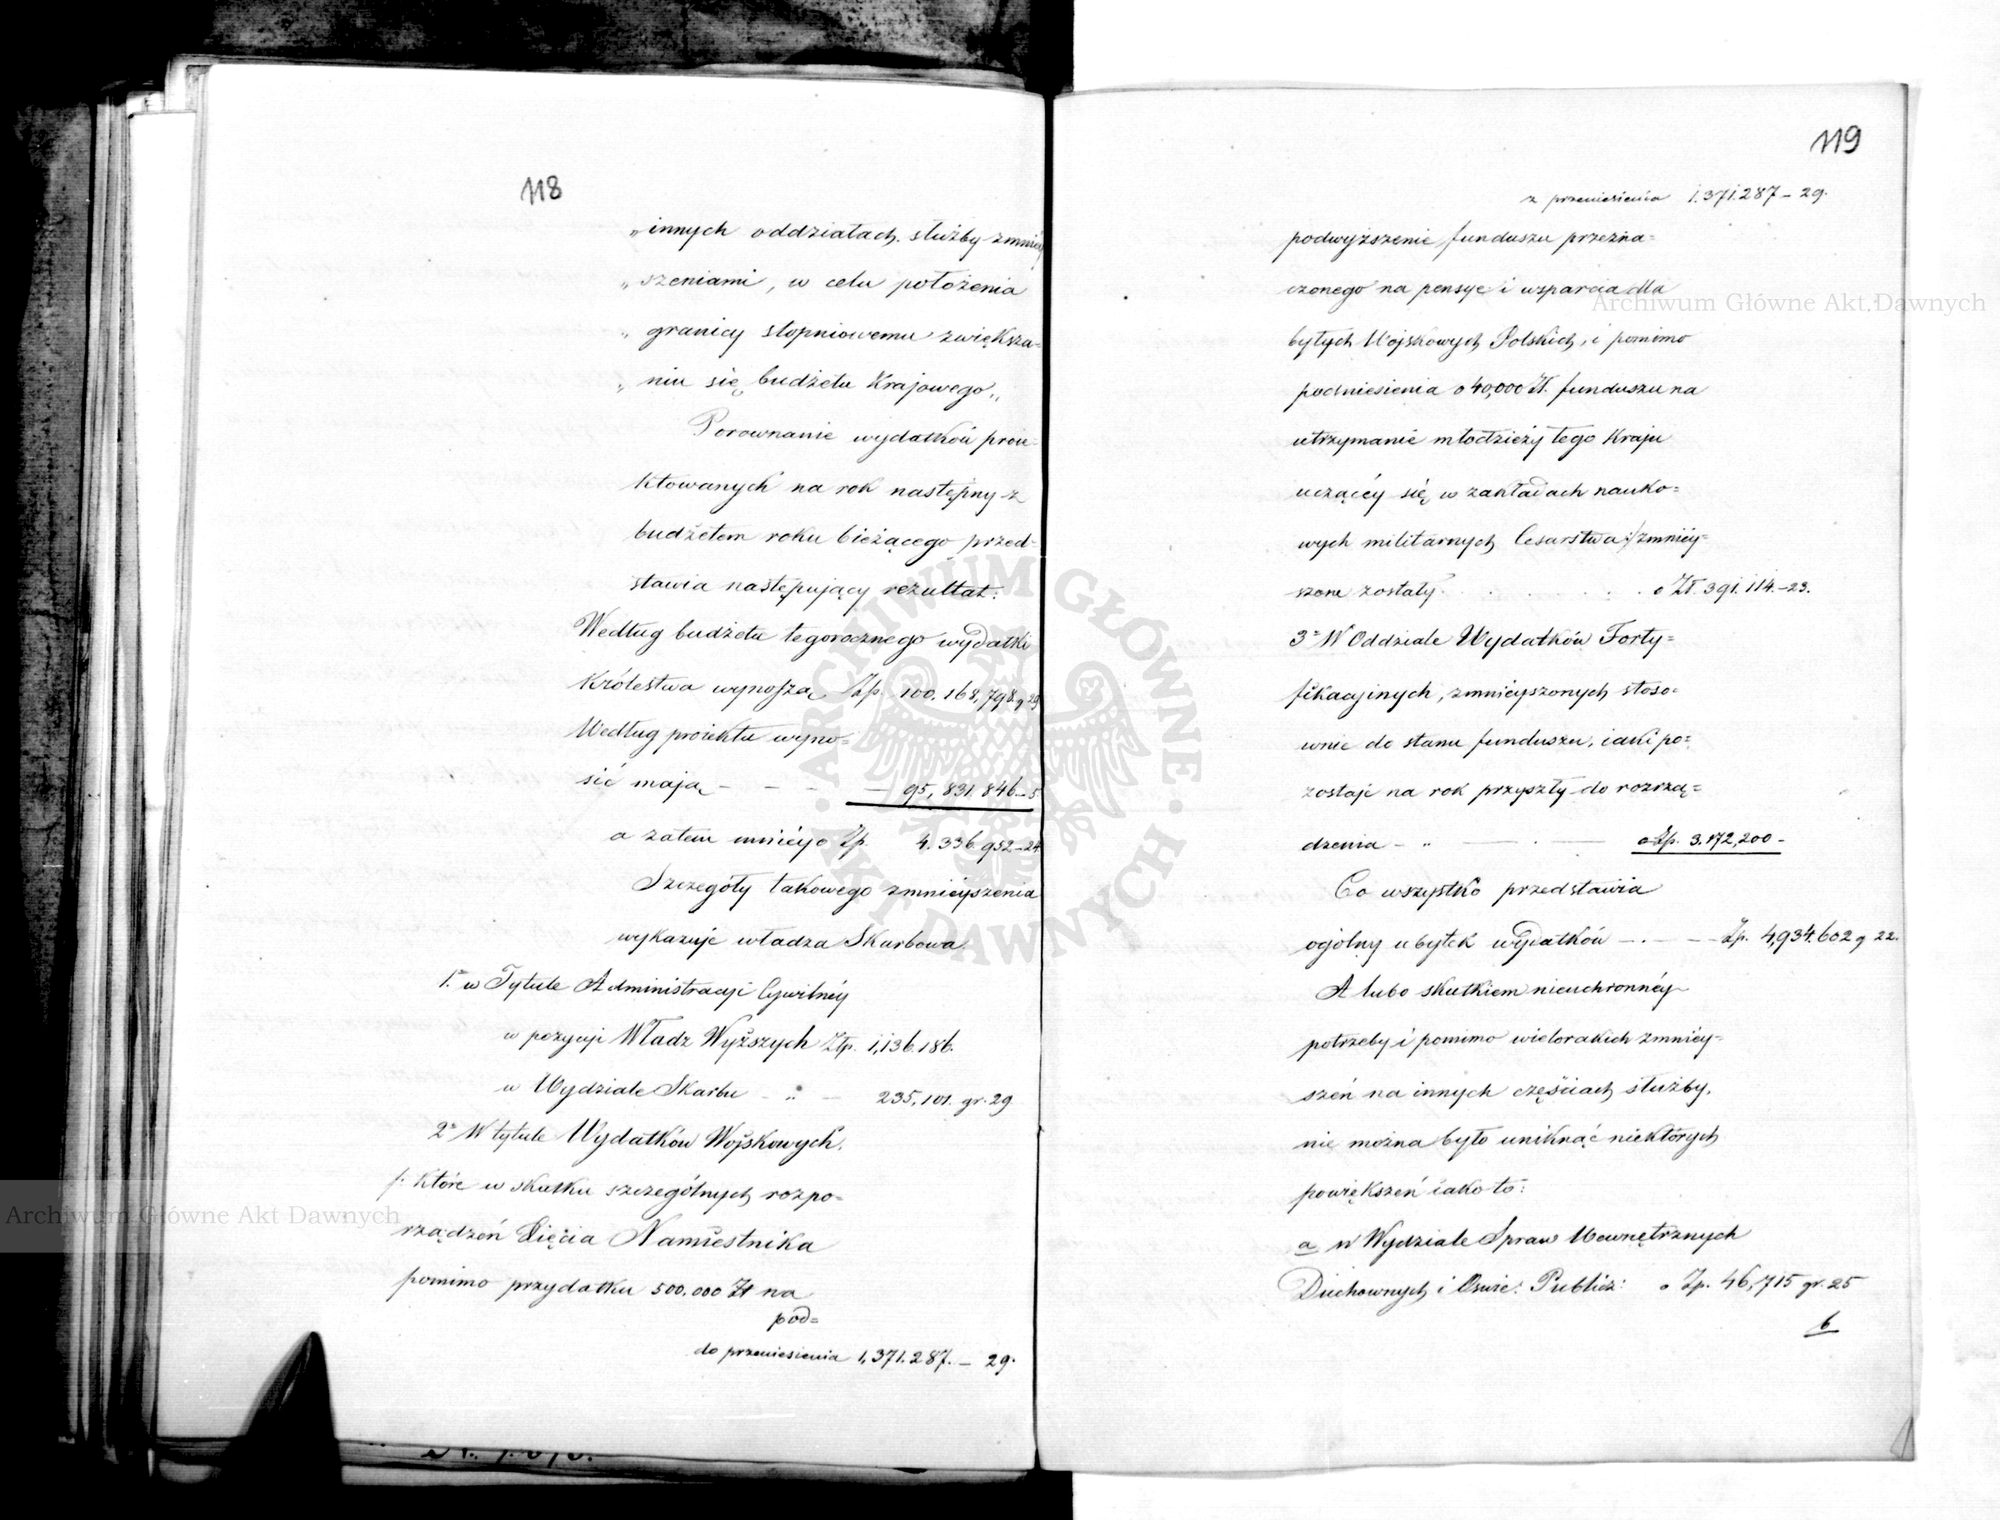 118
„innych oddziałach służby zmniey
„szeniami, w celu położenia
„granicy stopniowemu zwiększa=
„niu się budżetu Krajowego„
Porownanie wydatków proie=
ktowanych na rok następny z
budżetem roku bieżącego przed=
stawia następujący rezultat:
Według budżetu tegorocznego wydatki
Królestwa wynoszą Zp. 100,168,798 g 29
Według proiektu wyno=
sić mają - - - - 95,831.846 - 5
a zatem mniéy o Zp. 4.336.952 - 24
Szczegóły takowego zmniéyszenia
wykazuje władza Skarbowa.
1° w Tytule Administracyi Cywilnéy
w pozycyi Władz Wyższych Złp. 1,136.186.
w Wydziale Skarbu - „ - 235,101. gr. 29
2° W tytule Wydatków Woyskowych,
/: które w skutku szczególnych rozpo=
rządzeń Xięcia Namiestnika
pomimo przydatku 500.000 Zł na
pod=
do przeniesienia 1,371.287. - 29.
119
z przeniesienia 1.371.287 - 29.
podwyższenie funduszu przezna=
czonego na pensye i wsparcia dla
byłych Wojskowych Polskich, i pomimo
podniesienia o 40,000 Zł. funduszu na
utrzymanie młodzieży tego Kraju
uczącéy się w zakładach nauko=
wych militarnych Cesarstwa :/ zmniéy=
szone zostały . . . . . o Zł. 391.114. - 23.
3° W Oddziale Wydatków Forty=
fikacyinych, zmnieyszonych stoso=
wnie do stanu funduszu, iaki po=
zostaje na rok przyszły do rozrzą=
dzenia - „ — . — o Zp. 3.172,200 -
Co wszystko przedstawia
ogólny ubytek wydatków — . — - Zp. 4,934.602 g 22.
A lubo skutkiem nieuchronnéy
potrzeby i pomimo wielorakich zmniéy=
szeń na innych częściach służby,
nie można było uniknąć niektórych
powiększeń iako to:
a w Wydziale Spraw Wewnętrznych
Duchownych i Oświe: Publicz: o Zp. 46,715 gr. 25
b
Archiwum Główne Akt Dawnych
Archiwum Główne Akt Dawnych
· ARCHIWUM GŁÓWNE · AKT DAWNYCH